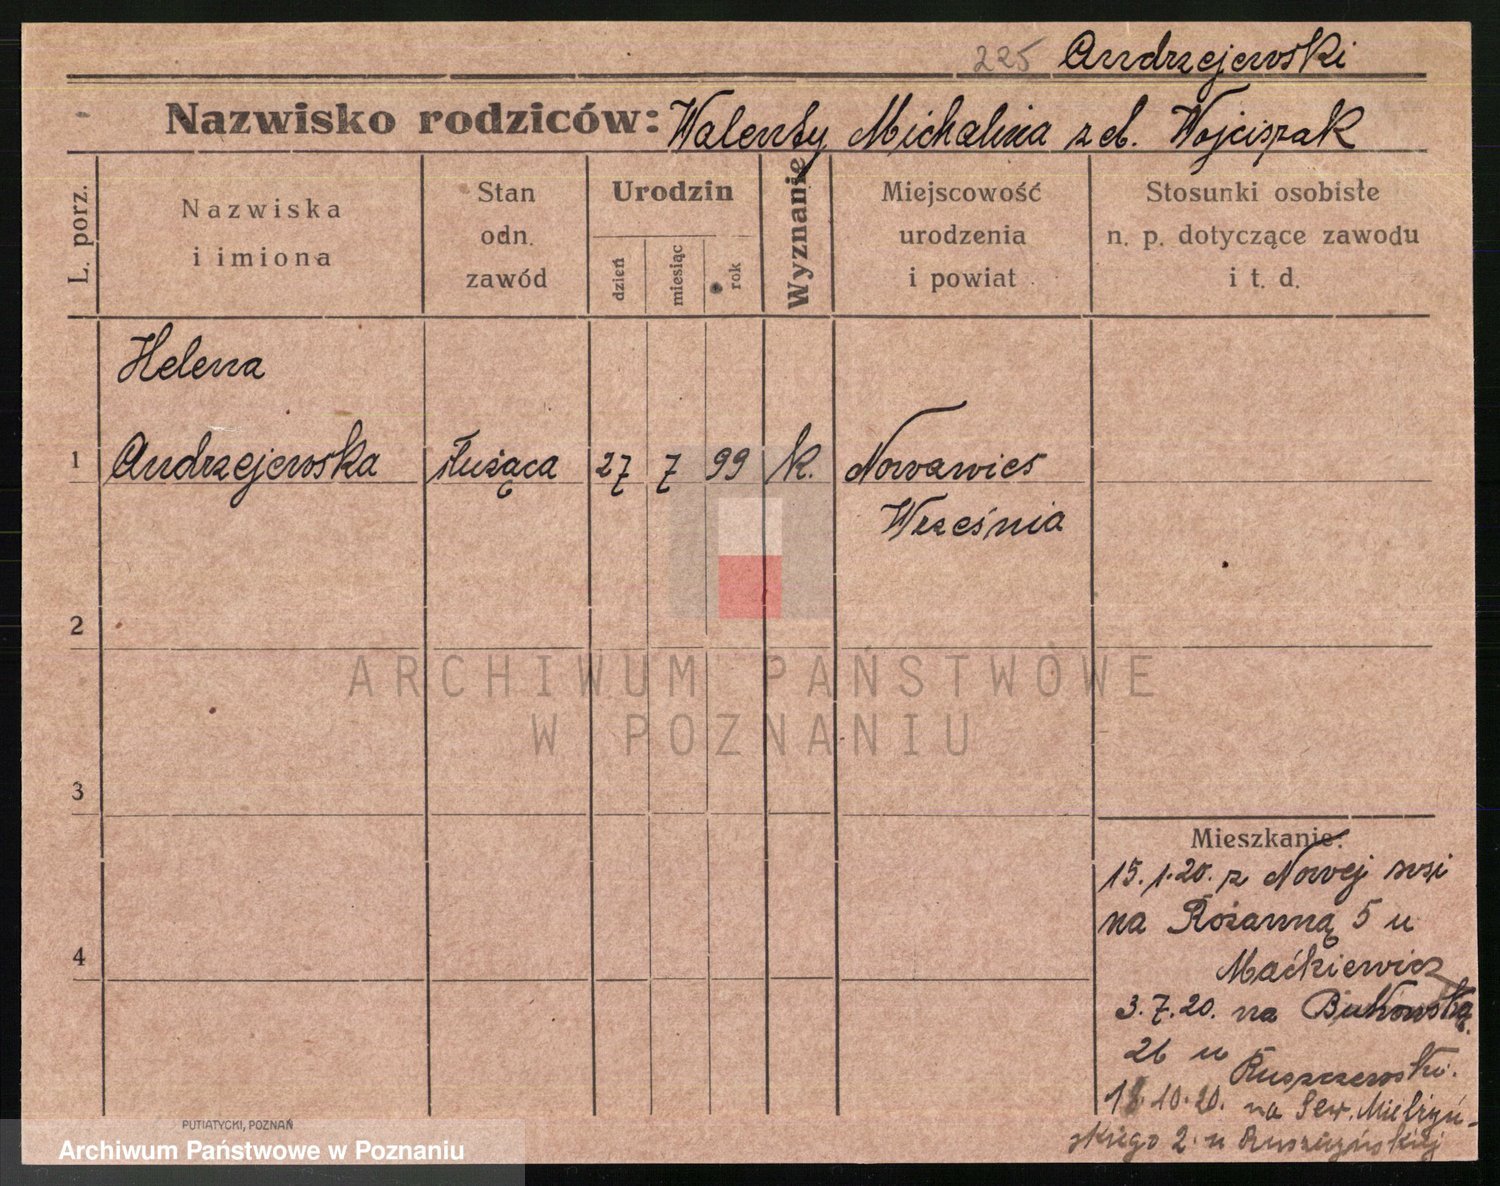 225 Andrzejewski
Nazwisko rodziców: Walenty Michalina z d. Wojciszak
L. porz.
Nazwiska
i imiona
Stan
odn.
zawód
Urodzin
dzień
miesiąc
rok
Wyznanie
Miejscowość
urodzenia
i powiat
Stosunki osobiste
n. p. dotyczące zawodu
i t. d.
Helena
1 Andrzejewska służąca 27 7 99 k. Nowawieś
Września
2
3
4
Mieszkanie:
15.1.20. z Nowej wsi
na Różanną 5 u
Maćkiewicz
3.7.20. na Bukowską
26 u
Ruszczewski.
10.20. na Sew. Mielżyń-
skiego 2. u
ARCHIWUM PAŃSTWOWE
W POZNANIU
PUTIATYCKI, POZNAŃ
Archiwum Państwowe w Poznaniu